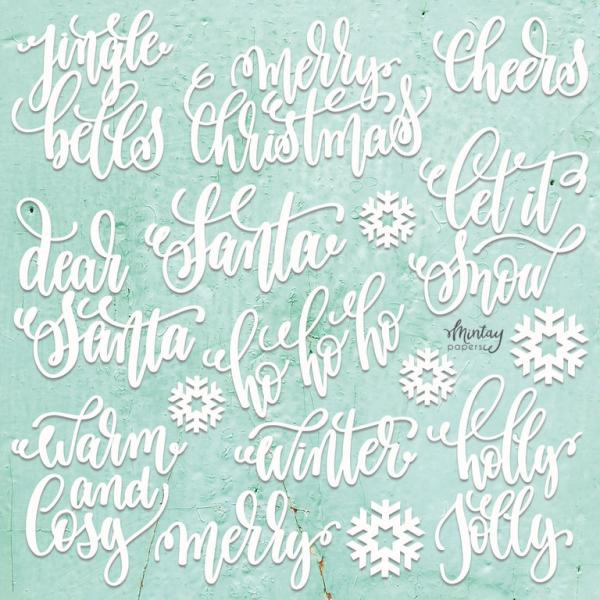 jingle
bells
merry
christmas
cheers
let it
snow
dear
Santa
Santa
ho ho ho
Mintay
papers
warm
and
Cosy
winter
merry
holly
Jolly